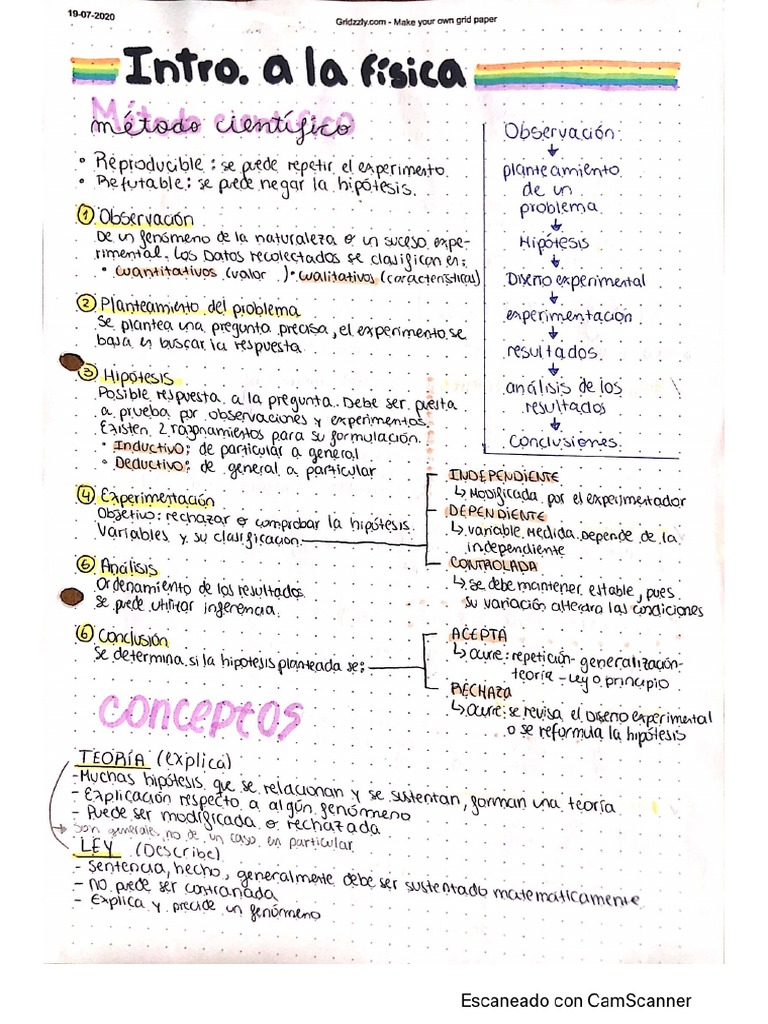 19-07-2020
Gridzzly.com - Make your own grid paper
Intro. a la física
método científico
• Reproducible: se puede repetir el experimento.
• Refutable: se puede negar la hipótesis.
① Observación
De un fenómeno de la naturaleza o un suceso expe-
rimental. Los Datos recolectados se clasifican en:
• cuantitativos (valor) • cualitativos (características)
② Planteamiento del problema
se plantea una pregunta precisa, el experimento se
basa en buscar la respuesta.
③ Hipótesis
Posible respuesta a la pregunta. Debe ser puesta
a prueba por observaciones y experimentos.
Existen 2 razonamientos para su formulación.
• Inductivo: de particular a general
• Deductivo: de general a particular
④ Experimentación
Objetivo: rechazar o comprobar la hipótesis.
Variables y su clasificación
INDEPENDIENTE
↳ Modificada por el experimentador
DEPENDIENTE
↳ variable medida. Depende de la
independiente
CONTROLADA
↳ se debe mantener estable, pues
su variación alterara las condiciones
⑤ Análisis
Ordenamiento de los resultados.
se puede utilizar inferencia.
⑥ Conclusión
Se determina si la hipótesis planteada se:
ACEPTA
↳ ocurre: repetición - generalización -
teoría - Ley o principio
RECHAZA
↳ ocurre: se revisa el Diseño experimental
o se reformula la hipótesis
Observación
↓
planteamiento
de un
problema
↓
Hipótesis
↓
Diseño experimental
↓
experimentación
↓
resultados
↓
análisis de los
resultados
↓
Conclusiones
conceptos
TEORÍA (explica)
- Muchas hipótesis que se relacionan y se sustentan, forman una teoría
- Explicación respecto a algún fenómeno
- Puede ser modificada o rechazada
son generales no de un caso en particular
LEY (Describe)
- Sentencia, hecho, generalmente debe ser sustentado matemáticamente
- no puede ser contrariada
- Explica y precide un fenómeno
Escaneado con CamScanner